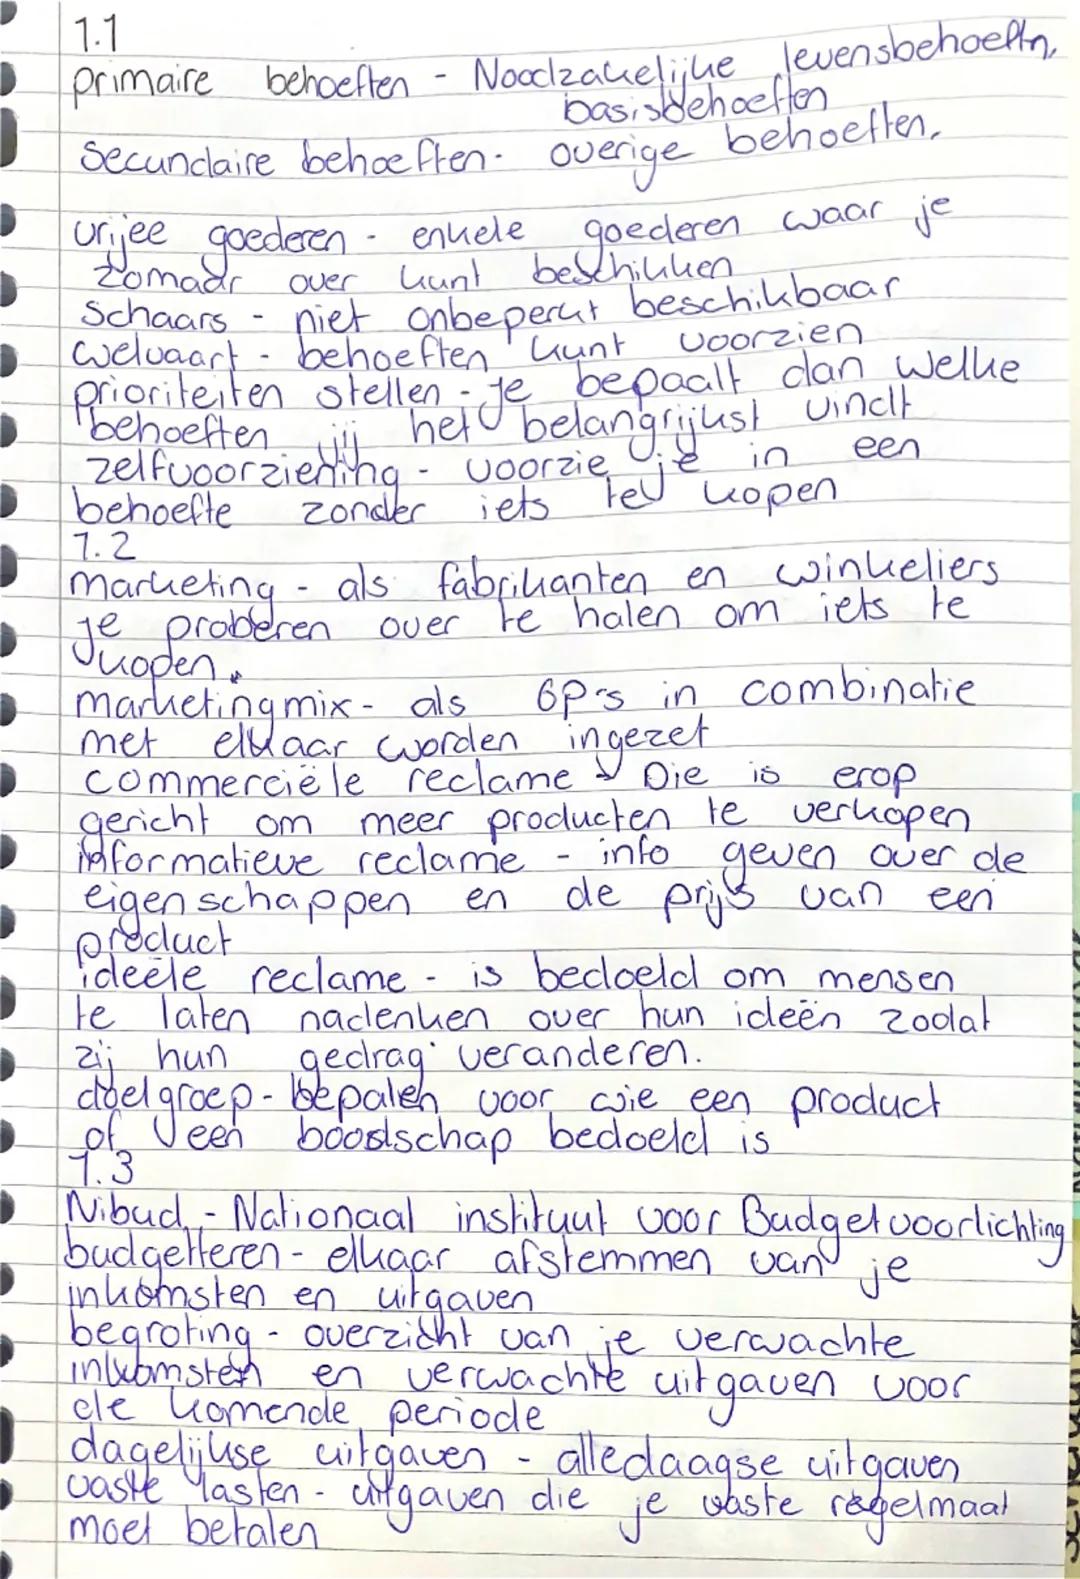 1.1
primaire behoeften - Noodzakelijke levensbehoeftn,
basisbehoeften
Secundaire behoeften. overige behoeften.
vrijee goederen - enkele goederen waar je
zomaar over kunt beschikken
Schaars - niet onbeperkt beschikbaar
welvaart - behoeften kunt voorzien
prioriteiten stellen - je bepaalt dan welke
behoeften jij het belangrijkst vindt
zelfvoorziening - voorzie je in een
behoefte zonder iets te kopen
1.2
marketing - als fabrikanten en winkeliers
je proberen over te halen om iets te
kopen.
marketingmix - als 6P's in combinatie
met elkaar worden ingezet
commerciële reclame - Die is erop
gericht om meer producten te verkopen
informatieve reclame - info geven over de
eigenschappen en de prijs van een
product
ideële reclame - is bedoeld om mensen
te laten nadenken over hun ideën zodat
zij hun gedrag veranderen.
doelgroep - bepalen voor wie een product
of een boodschap bedoeld is
1.3
Nibud - Nationaal instituut voor Budgetvoorlichting
budgetteren - elkaar afstemmen van je
inkomsten en uitgaven
begroting - overzicht van je verwachte
inkomsten en verwachte uitgaven voor
de komende periode
dagelijkse uitgaven - alledaagse uitgaven
vaste lasten - uitgaven die je vaste regelmaat
moet betalen